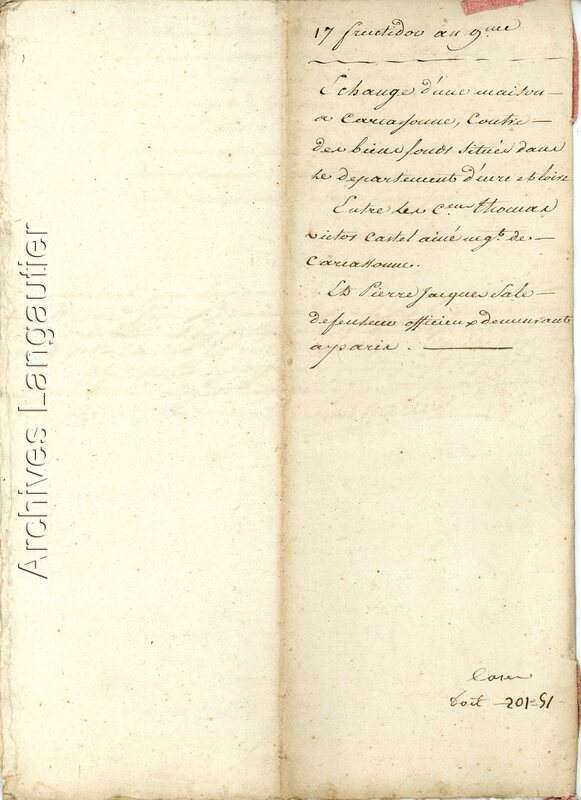 17 fructidor an 9me
Echange d'une maison
a Carcassonne, Contre
des biens fonds situés dans
le departement d'eure et loire
Entre les Cens thomas
victor Castel ainé negt. de
Carcassonne.
Et Pierre Jacques Sale
defenseur officieux demeurant
a paris.
doit 201=51
Archives Langautier